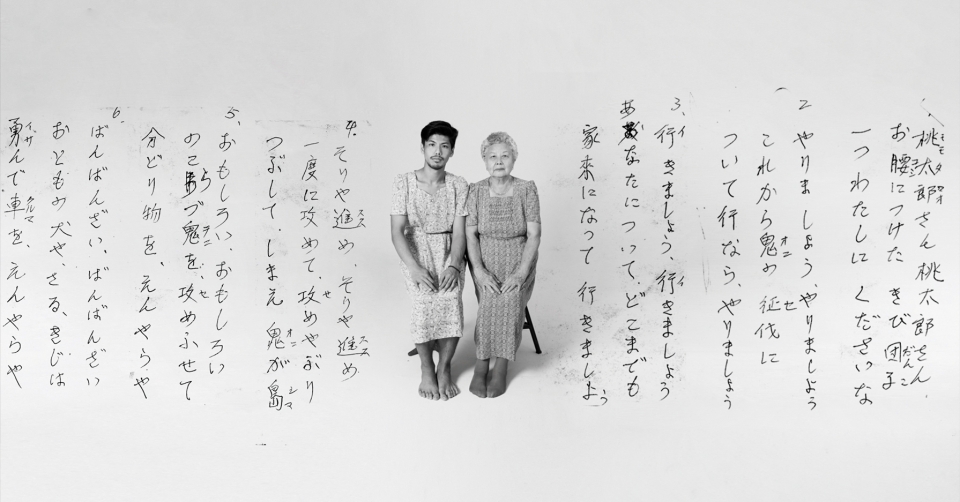 1、
モモタロオ
桃太郎さん桃太郎さん、
コシ だんご
お腰につけたきび団子
一つわたしにくださいな
2
やりましょう、やりましょう
オニ セ
これから鬼の征伐に
ついて行なら、やりましょう
3、
イ イ
行きましょう、行きましょう
あなたについて、どこまでも
家来になって行きましょう
4.
スス スス
そりや進め、そりや進め
セ
一度に攻めて、攻めやぶり
オニ シマ
つぶして、しまえ鬼が島
5、
おもしろい、おもしろい
オニ セ
のこらづ鬼を、攻めふせて
分どり物を、えんやらや
6.
ばんばんざい、ばんばんざい
おともの犬や、さる、きじは
イサ クルマ
勇んで車を、えんやらや